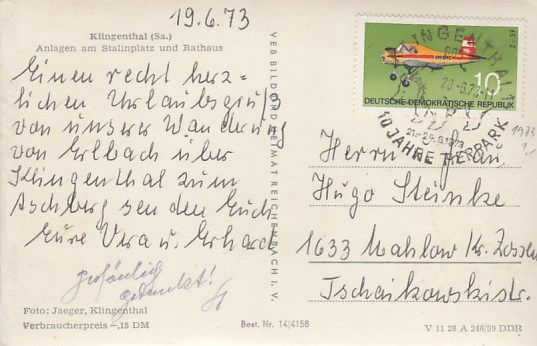 19.6.73
Klingenthal (Sa.)
Anlagen am Stalinplatz und Rathaus
Einen recht herz=
lichen Urlaubsgruß
von unserer Wanderung
von Erlbach über
Klingenthal zum
Aschberg senden Euch
Eure Vera u. Erhard
persönlich
gedruckt!
Foto: Jaeger, Klingenthal
Verbraucherpreis -,15 DM
VEB BILD UND HEIMAT REICHENBACH I. V.
Best. Nr. 14/4158
KLINGENTHAL 1
20.-6.73
10
DEUTSCHE DEMOKRATISCHE REPUBLIK
21.-24.6.1973
10 JAHRE TIERPARK
1973
Herrn u. Frau
Hugo Steinke
1633 Mahlow Kr. Zossen
Tschaikowskistr.
V 11 28 A 246/59 DDR